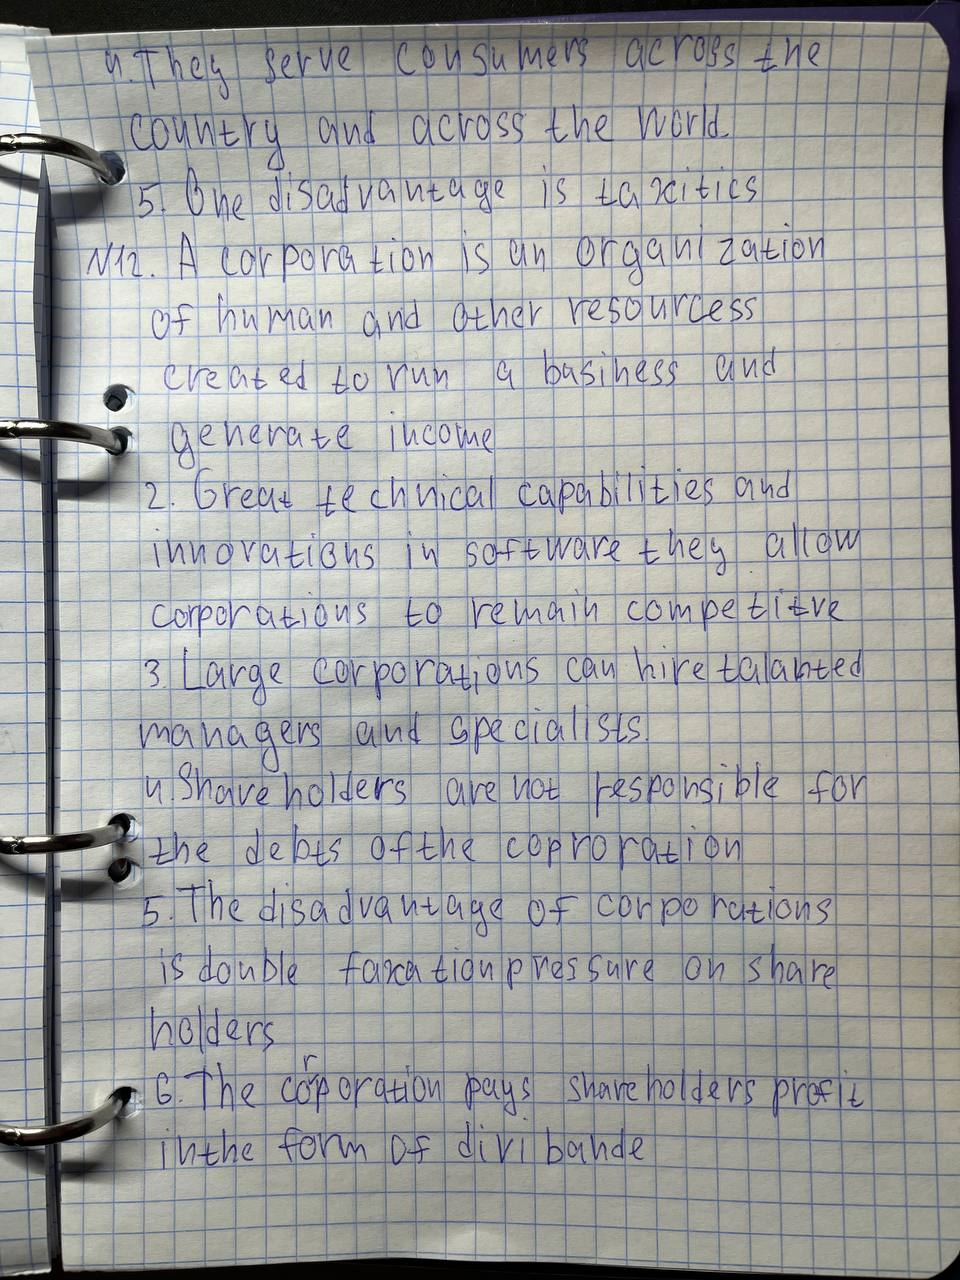 4. They serve consumers across the
country and across the world.
5. One disadvantage is taxitics
N12. A corporation is an organization
of human and other resourcess
created to run a business and
generate income
2. Great technical capabilities and
innovations in software they allow
corporations to remain competitve
3. Large corporations can hire talanted
managers and specialists.
4. Shareholders are not responsible for
the debts of the coproration
5. The disadvantage of corporations
is double taxation pressure on share
holders
6. The corporation pays shareholders profit
in the form of divi bande